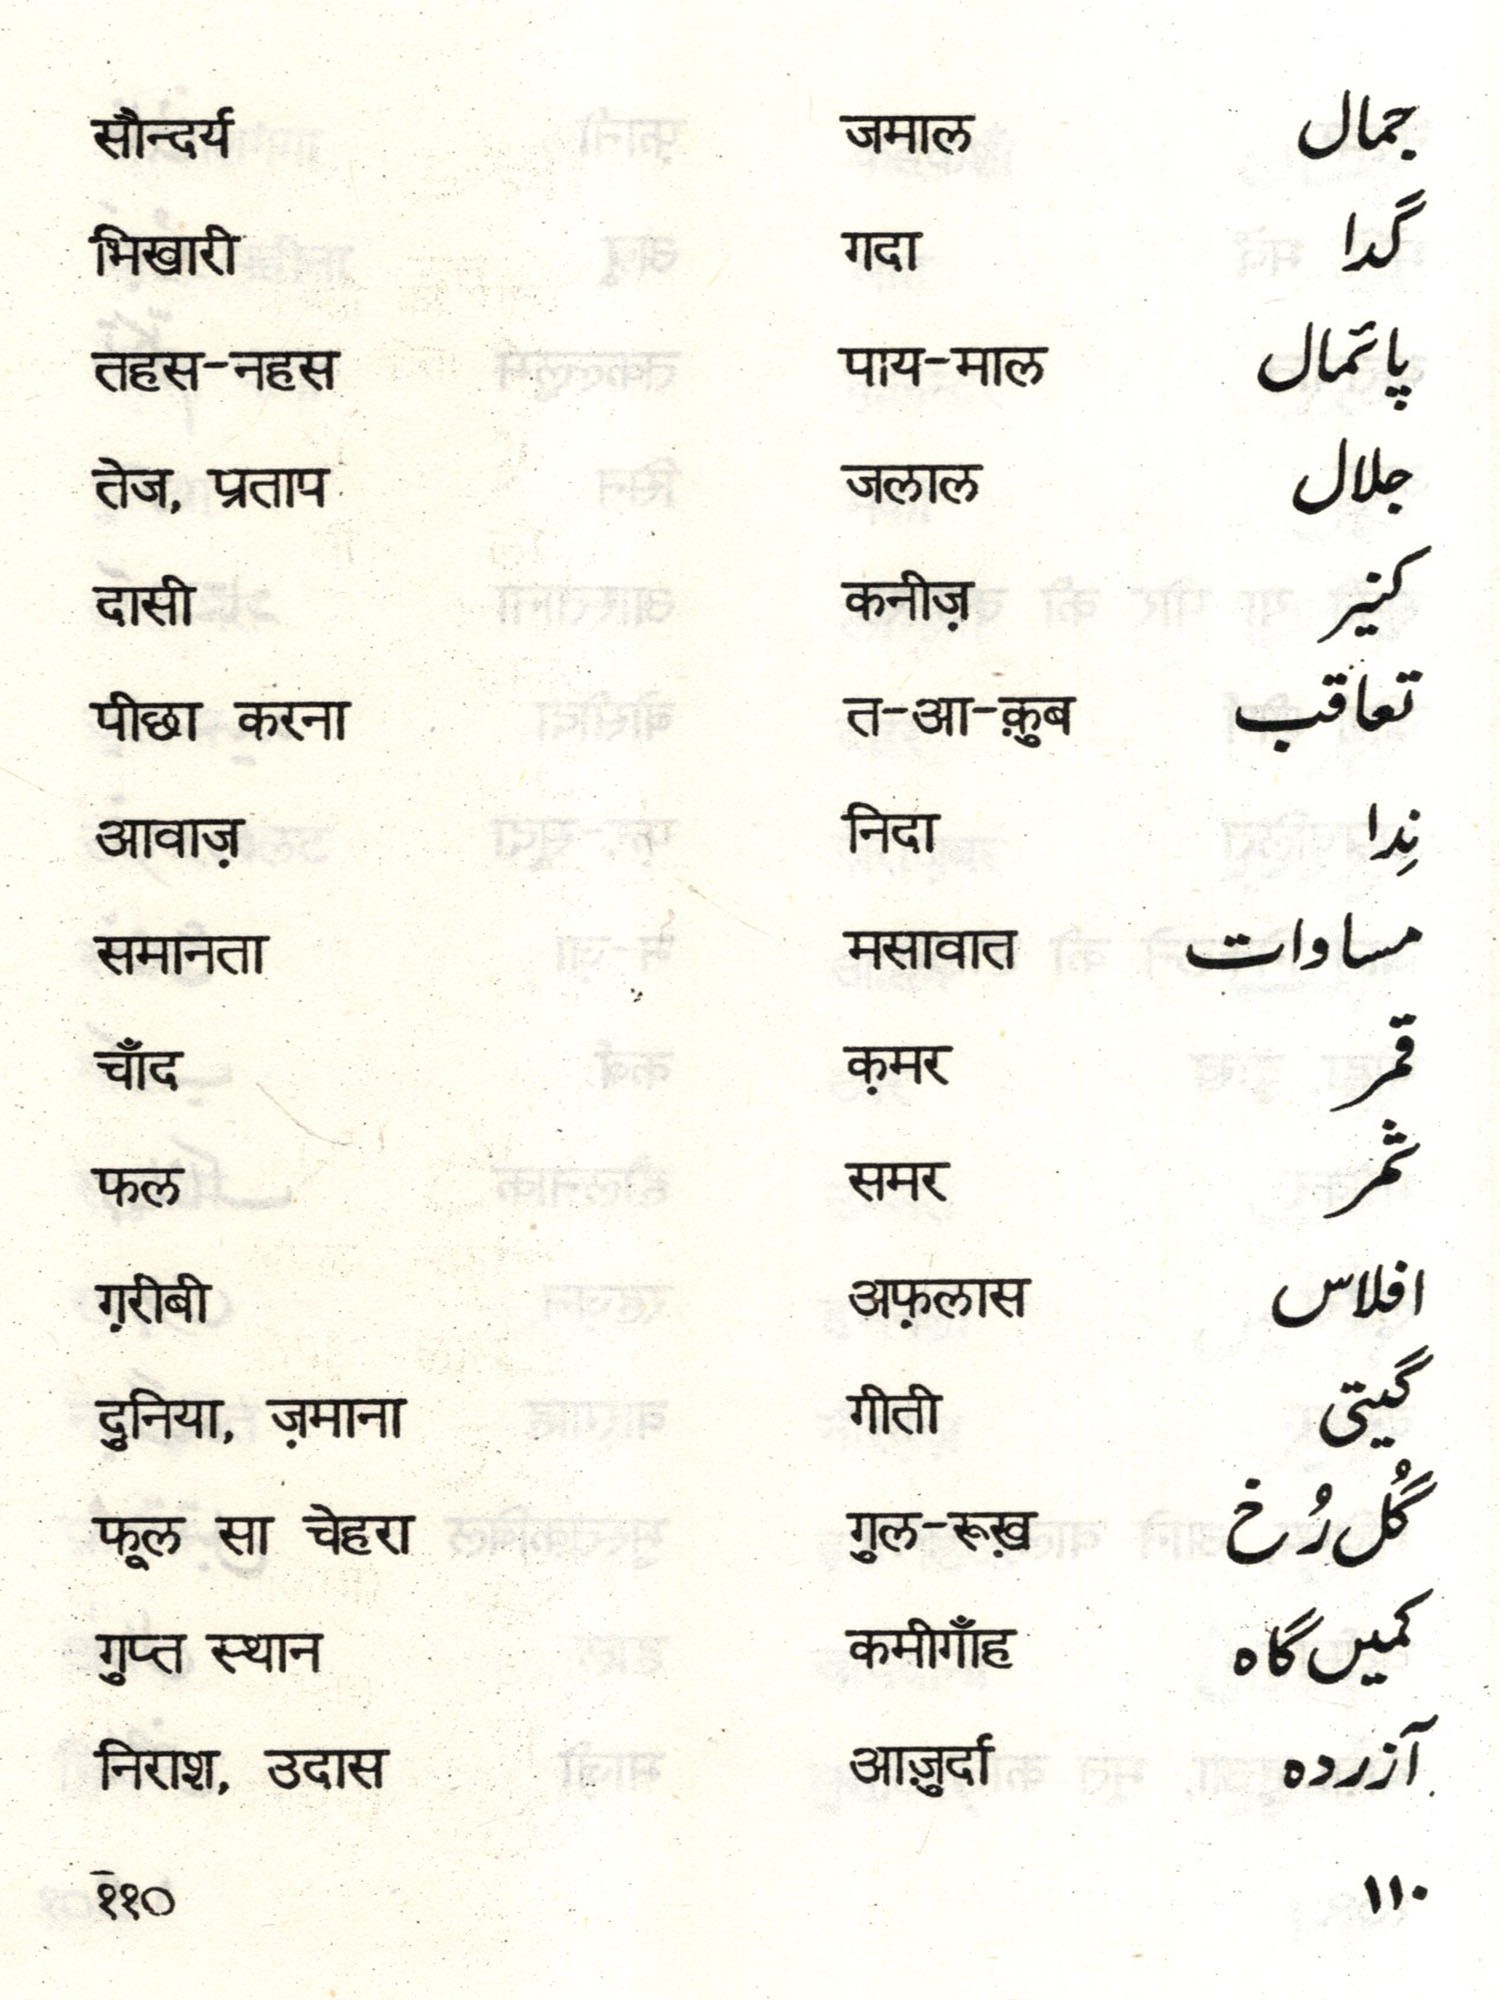 सौन्दर्य जमाल جمال
भिखारी गदा گدا
तहस-नहस पाय-माल پائمال
तेज, प्रताप जलाल جلال
दासी कनीज़ کنیز
पीछा करना त-आ-क़ुब تعاقب
आवाज़ निदा نِدا
समानता मसावात مساوات
चाँद क़मर قمر
फल समर ثمر
ग़रीबी अफ़लास افلاس
दुनिया, ज़माना गीती گیتی
फूल सा चेहरा गुल-रूख़ گُل رُخ
गुप्त स्थान कमीगाँह کمیں گاہ
निराश, उदास आज़ुर्दा آزردہ
११० ۱۱۰